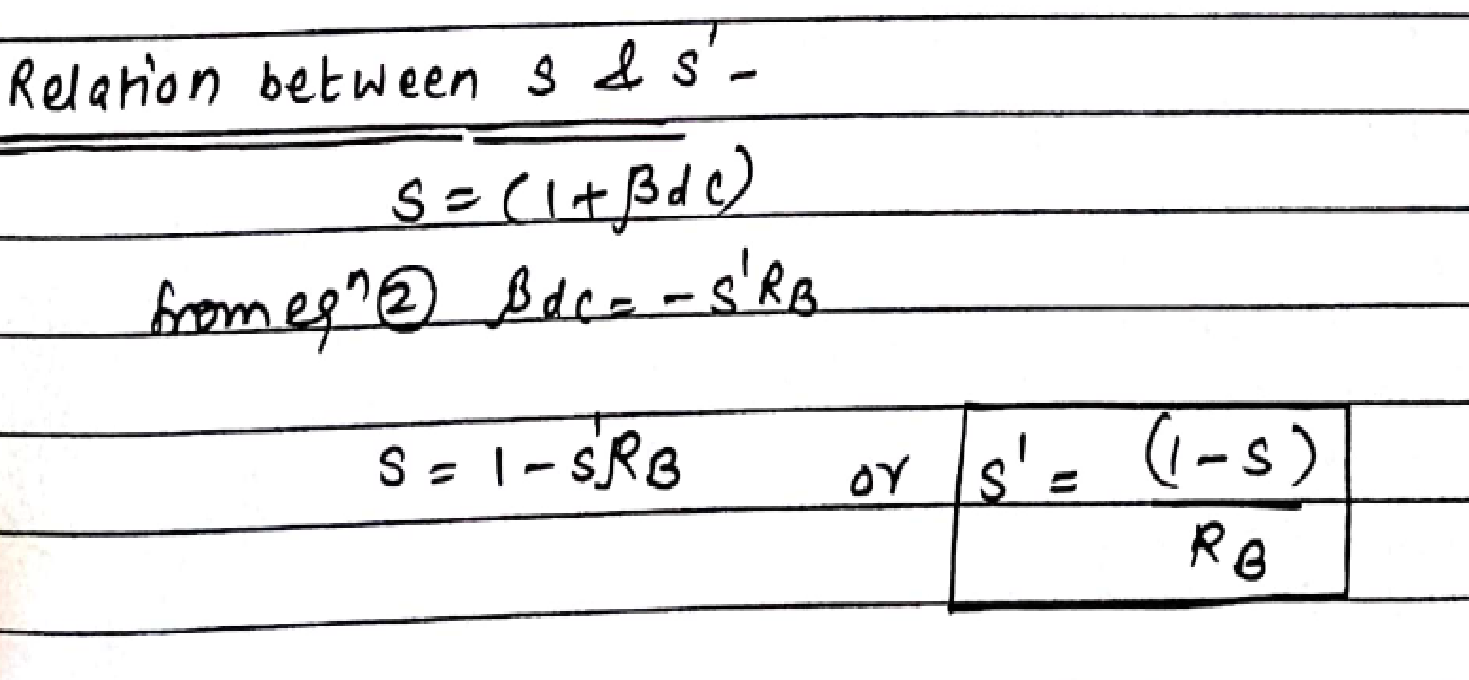 Relation between S & S' -
S = (1 + βdc)
from eqⁿ ② βdc = - S'RB
S = 1 - S'RB or S' = (1 - S) / RB